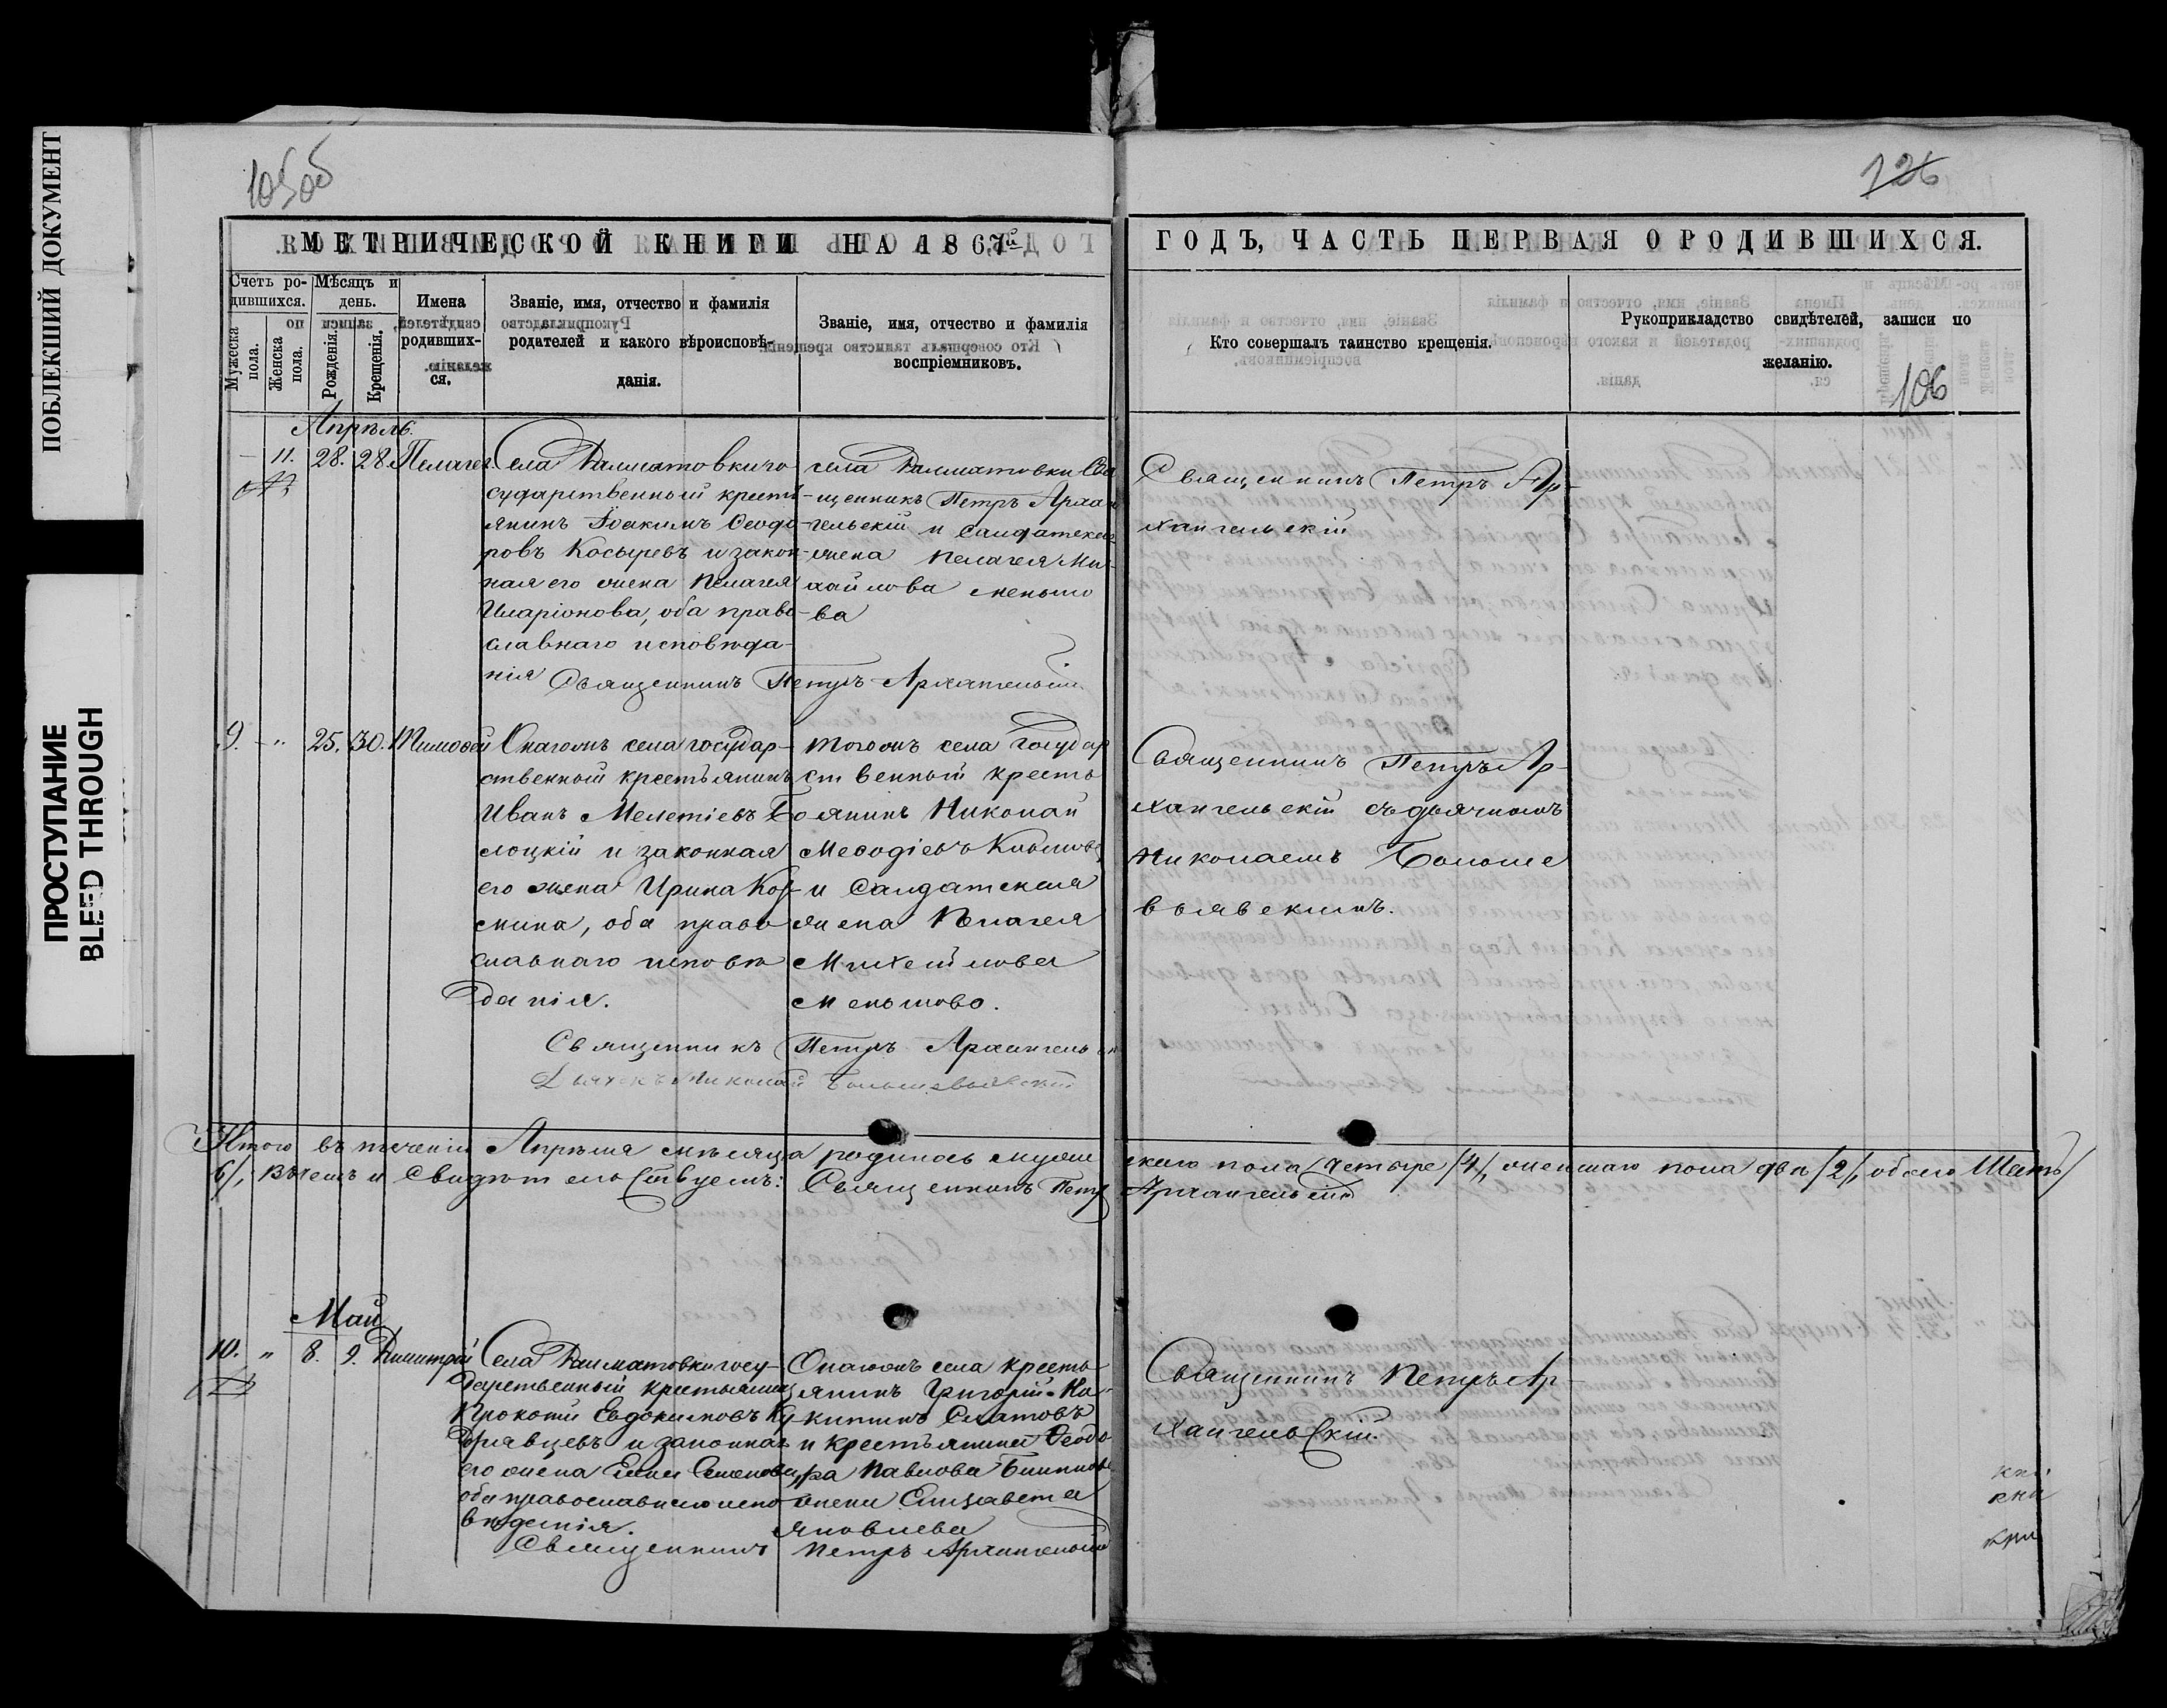 ПОБЛЕКШИЙ ДОКУМЕНТ
ПРОСТУПАНИЕ
BLEED THROUGH
105об
126
МЕТРИЧЕСКОЙ КНИГИ НА 1867й
ГОДЪ, ЧАСТЬ ПЕРВАЯ О РОДИВШИХСЯ.
Счетъ ро-
дившихся.
Мужеска
пола.
Женска
пола.
Мѣсяцъ и
день.
Рожденія.
Крещенія.
Имена
родивших-
ся.
Званіе, имя, отчество и фамилія
родателей и какого вѣроисповѣ-
данія.
Званіе, имя, отчество и фамилія
воспріемниковъ.
Кто совершалъ таинство крещенія.
Рукоприкладство свидѣтелей, записи по
желанію.
106
Апрѣль.
11. 28. 28. Пелагея.
Села Далматовки го
сударственный кресть
янинъ Іоакимъ Ѳеодо-
ровъ Косыревъ и закон-
ная его жена Пелагея
Иларіонова, оба право-
славнаго исповѣда-
нія
села Далматовки Свя
щенникъ Петръ Архан
гельскій и салдатская
жена Пелагея Ми-
хайлова Меньшо
ва
Священникъ Петръ Архангельскій
Священникъ Петръ Ар-
хангельскій
9. - " 25. 30. Тимоѳей
Онагожъ села государ-
ственный крестьянинъ
Иванъ Мелетіевъ Бо
лоцкій и законная
его жена Ирина Коз-
мина, оба право
славнаго исповѣ
данія.
тогожъ села Государ
ственный кресть
янинъ Николай
Меѳодіевъ
и Салдатская
жена Пелагея
Михайлова
Меньшово.
Священникъ Петръ Архангельск
Дьячекъ Николай
Священникъ Петръ Ар-
хангельскій съ дьячкомъ
Николаемъ
Итого въ теченіи Апрѣля мѣсяца родилось мужескаго пола четыре /4/, женскаго пола двѣ /2/, обоего Шесть/
6/, Въ чемъ и Свидѣтельствуемъ: Священникъ Петръ Архангельскій
Май
10. " 8. 9. Димитрій
Села Далматовки госу-
дарственный крестьянинъ
Прокопій Евдокимовъ Ку
дрявцевъ и законная
его жена Семенова,
оба православнаго испо
вѣданія.
Онагожъ села кресть
янинъ Григорій Ни-
китинъ
и крестьянина Ѳеодо
ра Павлова
жена Елизавета
Яковлева
Священникъ Петръ Архангельскій
Священникъ Петръ Ар-
хангельскій.